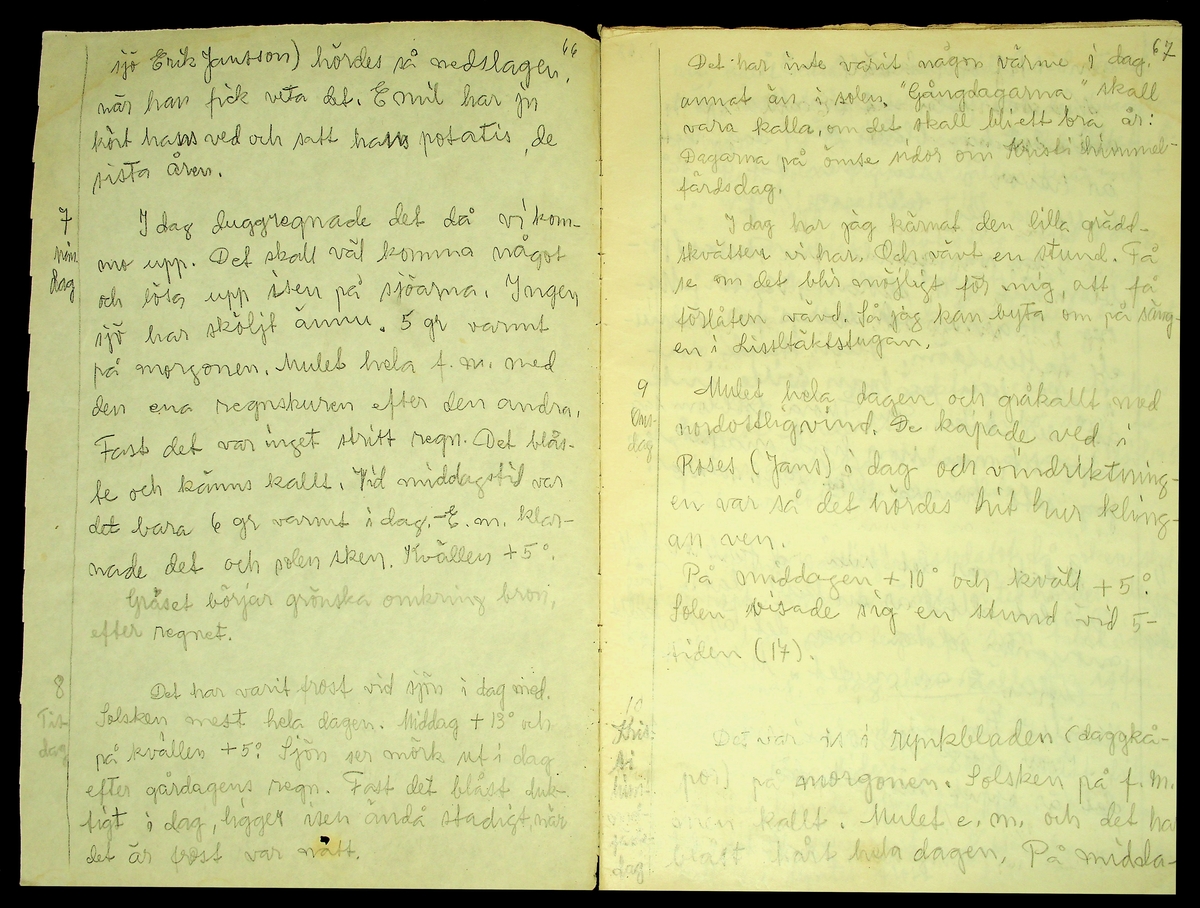 66
sjö Erik Jansson) hördes så nedslagen,
när han fick veta det. Emil har ju
kört hans ved och satt hans potatis, de
sista åren.
7
mån-
dag
I dag duggregnade det då vi kom-
mo upp. Det skall väl komma något
och lösa upp isen på sjöarna. Ingen
sjö har sköljt ännu. 5 gr varmt
på morgonen. Mulet hela f. m. med
den ena regnskuren efter den andra.
Fast det var inget stritt regn. Det blås-
te och känns kallt. Vid middagstid var
det bara 6 gr varmt i dag. - E. m. klar-
nade det och solen sken. Kvällen +5°.
Gräset börjar grönska omkring bron,
efter regnet.
8
Tis-
dag
Det har varit frost vid sjön i dag med.
Solsken mest hela dagen. Middag +13° och
på kvällen +5°. Sjön ser mörk ut i dag
efter gårdagens regn. Fast det blåst duk-
tigt i dag, ligger isen ändå stadigt, när
det är frost var natt.
67
Det har inte varit någon värme i dag,
annat än i solen. "Gångdagarna" skall
vara kalla, om det skall bli ett bra år:
Dagarna på ömse sidor om Kristi himmel-
färdsdag.
I dag har jag kärnat den lilla grädd-
skvätten vi har. Och vävt en stund. Få
se om det blir möjligt för mig, att få
förlåten vävd. Så jag kan byta om på säng-
en i Lisseltäktstugan.
9
Ons-
dag
Mulet hela dagen och gråkallt med
nordostlig vind. De kapade ved i
Roses (Jans) i dag och vindriktning-
en var så det hördes hit hur kling-
an ven.
På middagen +10° och kväll +5°.
Solen visade sig en stund vid 5-
tiden (17).
10
Kris-
ti
him-
mels-
färds-
dag
Det var is i rynkbladen (daggkå-
por) på morgonen. Solsken på f. m.
men kallt. Mulet e. m. och det har
blåst hårt hela dagen. På midda-